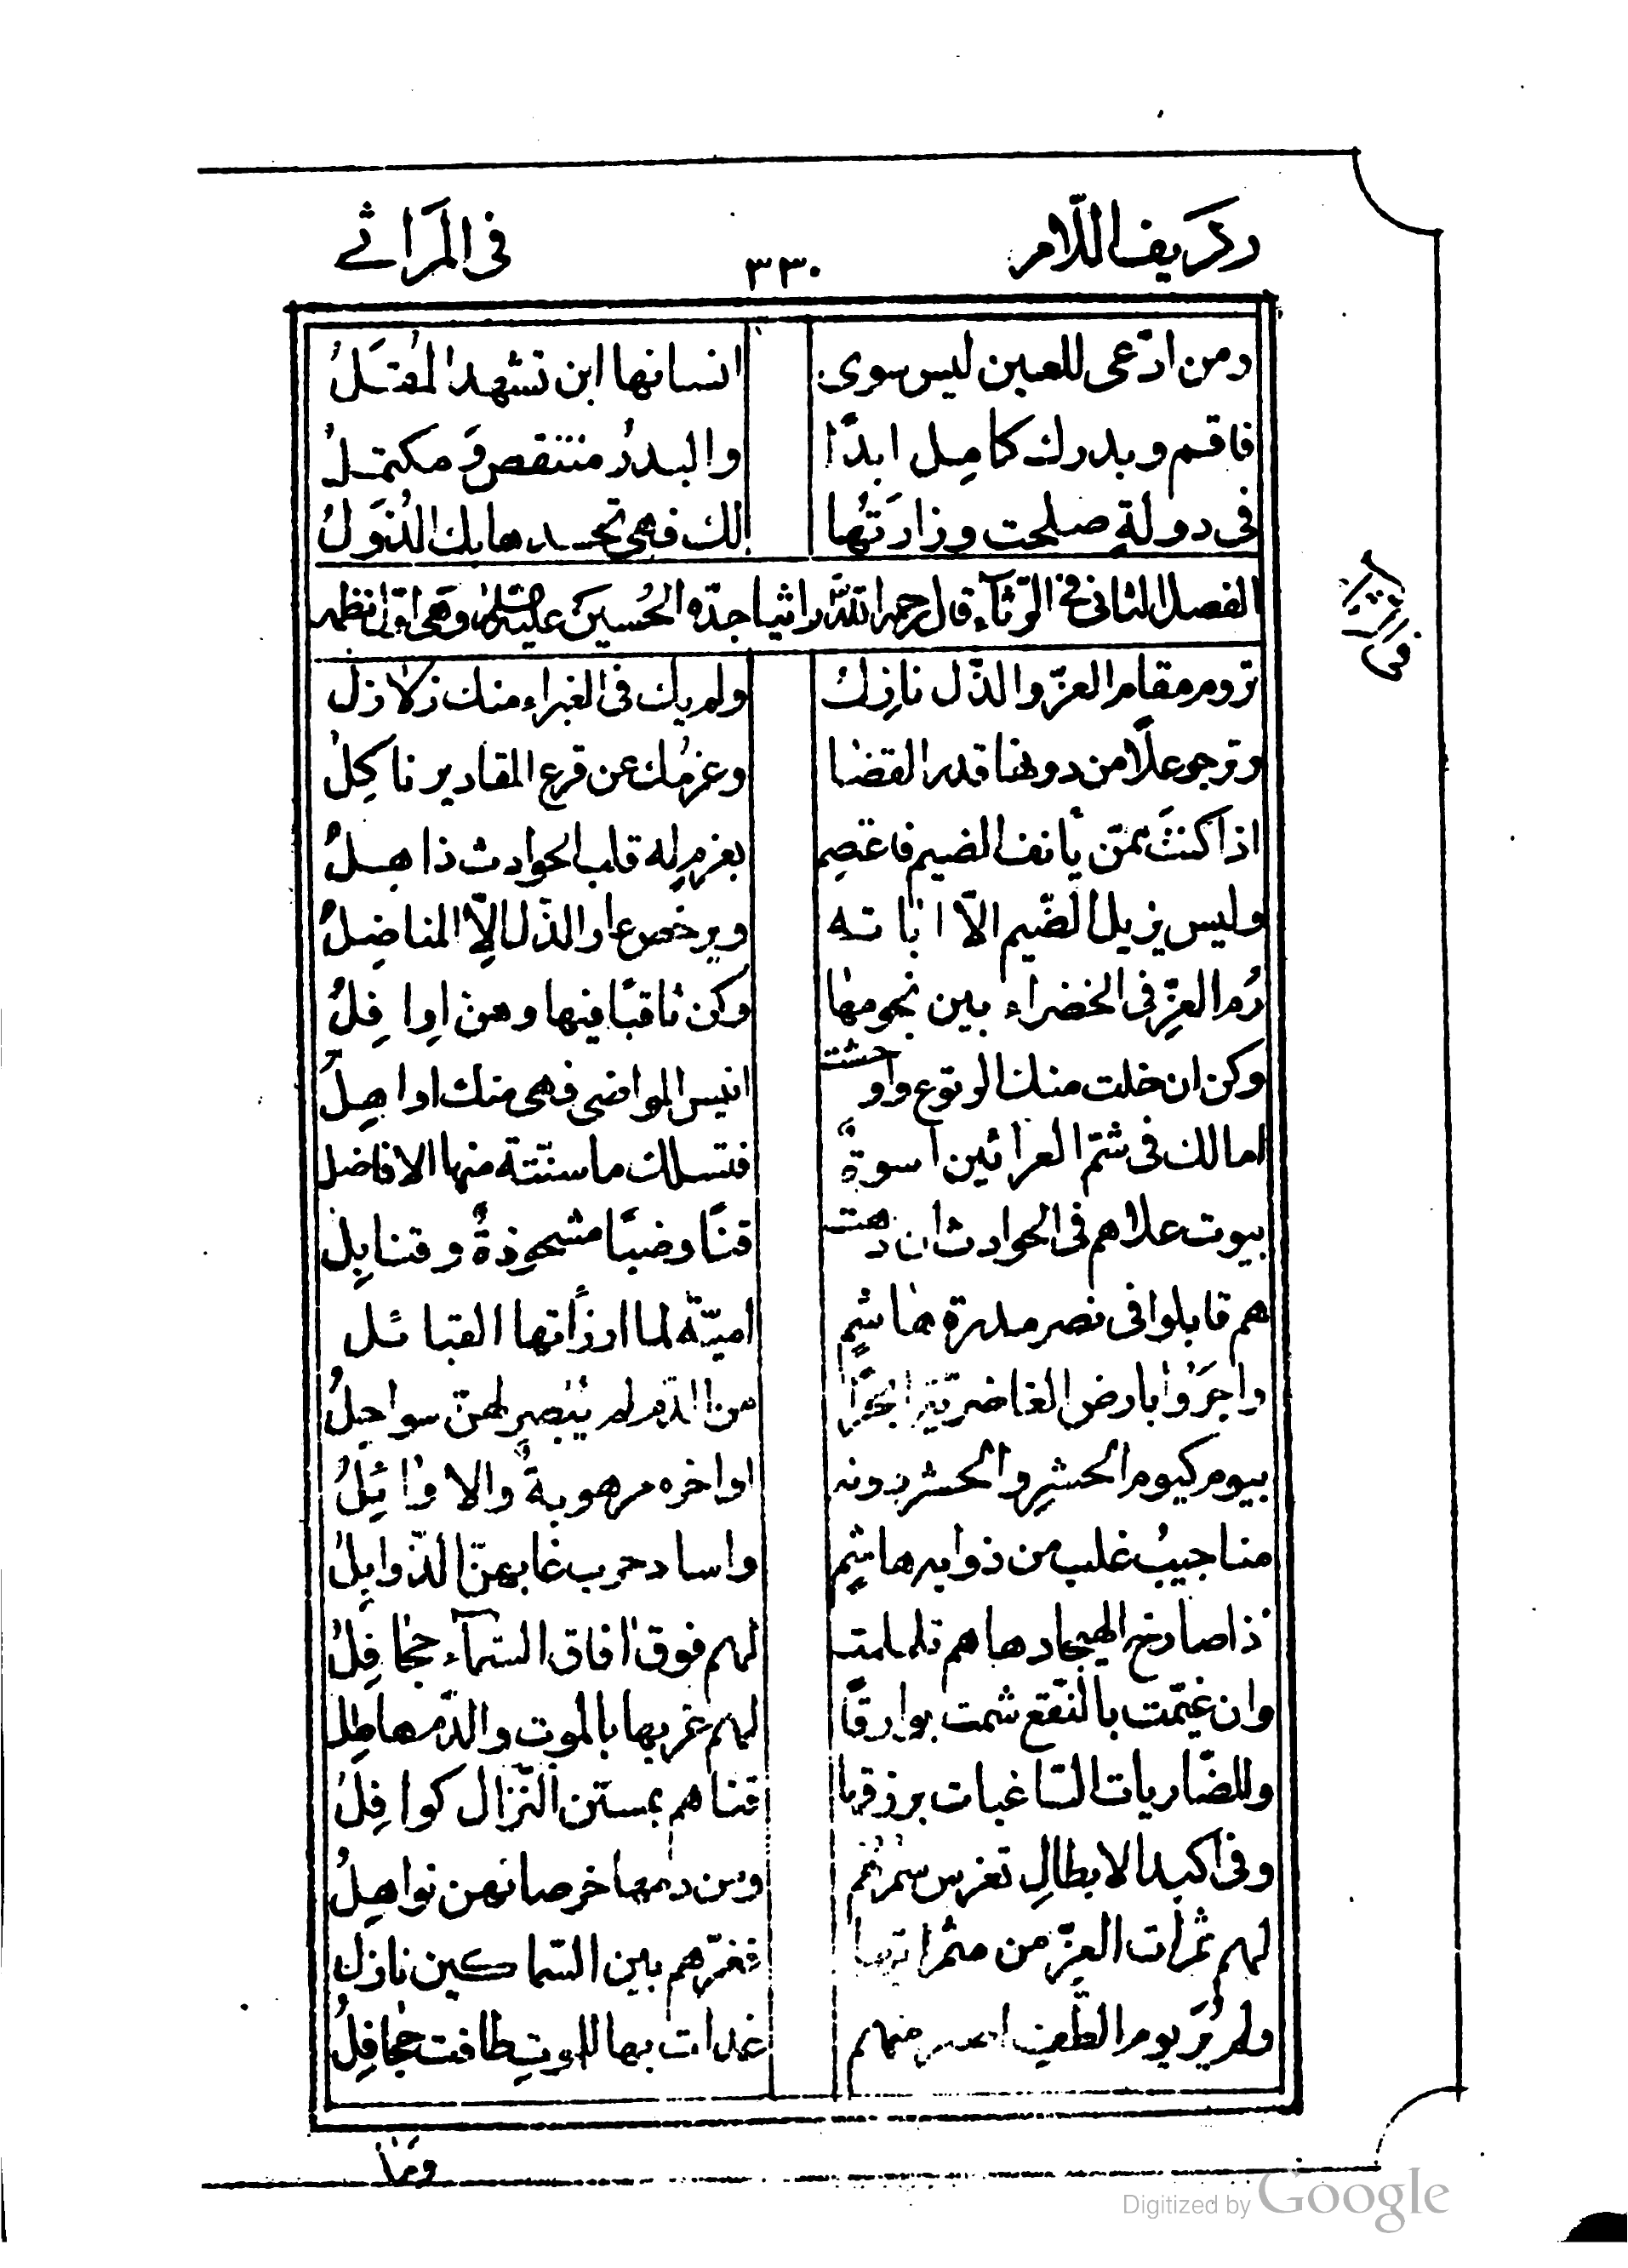 رديف اللّام ٣٣٠ فى المَراثے
ومن ادّعى للعين ليس سوى انسانها ابن تشهد المُقَلُ
فاقسم وبدرك كامِل ابدًا والبدرُ منتقص وَ مكتملُ
فى دولةٍ صلحت وزارَتُها لك فهى تحسدها بك الدُوَلُ
الفصل الثانى فى الرّثآء قال رحمه اللّه راثيا جدّه الحُسين عليه السّلام وهى اوّل نظمه
فى الرثاء
تروم مقام العزّ والذّل نازِل ولم يك فى الغبراء منك زلازل
وترجو علًا من دونها قدر القضا وعزمُك عن قرع المقادير ناكِلُ
اذا كنتَ ممّن يأنف الضيم فاعتصِم بعزمٍ له قلب الحوادث ذاهِلُ
وليس يزيل الضّيم الّا اباته ويرخص عار الذّل الّا المناضِلُ
رُم العزّ فى الخضراء بين نجومها وكن ثاقبًا فيها وهنّ اوافِلُ
وكن ان خلت منك الربوع واوحشت انيس المواضى فهى منك اواهِلُ
امالك فى شمّ العرانين اسوةٌ فتسلك ما سنّته منها الافاضل
بيوت علاهم فى الحوادث ان دهت قنًا وضبًا مشحوذةٌ وقنابِل
هم قابلوا فى نصر مدرة هاشمٍ اميّة لما ارزأتها القبائل
واجرَوا بارض الغاضريّة ابحرًا من الدّم لم يُبصر لهنّ سواحِلُ
بيوم كيوم الحشرِ والحشر دونه اواخره مرهوبةٌ والاوائِلُ
مناجيبُ غلب من ذوابه هاشمٍ واساد حرب غابهنّ الذّوابِلُ
اذا صارخ الهيجا دهاهم تلملمت لهم فوق افاق السّمآء جحافِلُ
وان غيّمت بالنّقع شمت بوارقًا لهم غربها بالموت والدّم هاطِل
وللضّاريات السّاغبات برزقها قناهم بمستن النّزال كوافِلُ
وفى اكبد الابطالِ تغرس سمرهُم ومن دمها خرصانهن نواهِلُ
لهم ثمرات العِزّ من مثمراتها تغرّهم بين السّماكين نازل
ولم يُرَ يوم الطّعن منهم غدات بها للموتِ طافت جحافِلُ
وما
Digitized by Google